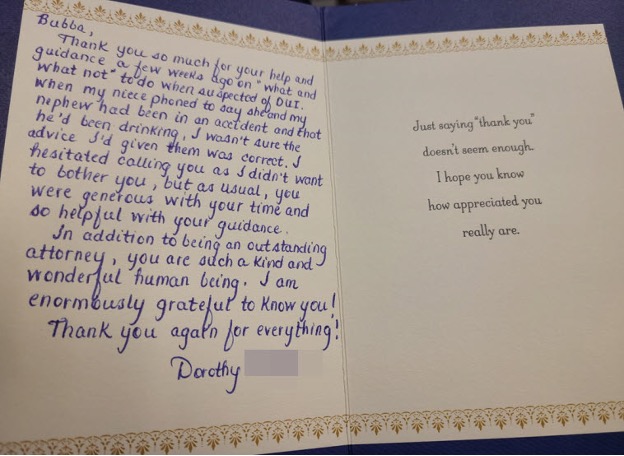 Bubba,
Thank you so much for your help and
guidance a few weeks ago on "what and
what not" to do when suspected of DUI.
When my niece phoned to say she and my
nephew had been in an accident and that
he'd been drinking, I wasn't sure the
advice I'd given them was correct. I
hesitated calling you as I didn't want
to bother you, but as usual, you
were generous with your time and
so helpful with your guidance.
In addition to being an outstanding
attorney, you are such a kind and
wonderful human being. I am
enormously grateful to know you!
Thank you again for everything!
Dorothy
Just saying "thank you"
doesn't seem enough.
I hope you know
how appreciated you
really are.